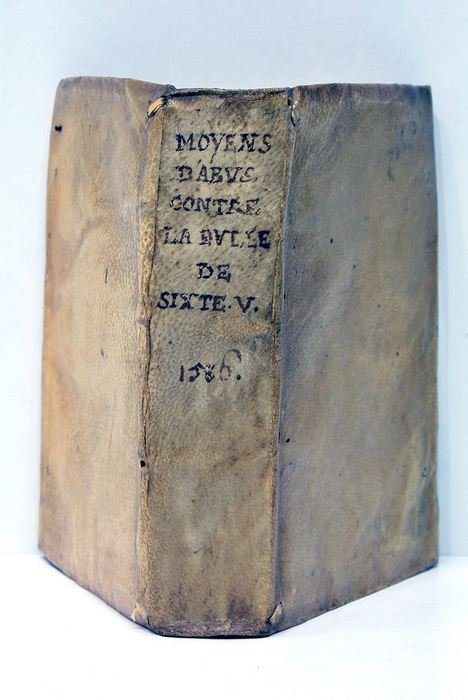 MOYENS
D'ABVS
CONTRE
LA BVLLE
DE
SIXTE·V.
1586.